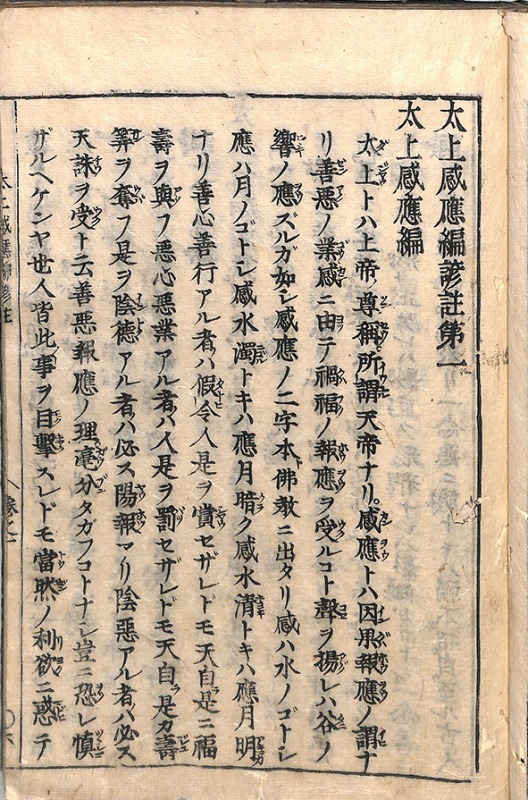 太上感應編諺註第一
太上感應編
太上トハ上帝ノ尊稱所謂天帝ナリ感應トハ因果報應ノ謂ナ
リ善惡ノ業感ニ由テ禍福ノ報應ヲ受ルコト聲ヲ揚レハ谷ノ
響ノ應ズルガ如シ感應ノ二字本ト佛教ニ出タリ感ハ水ノゴトシ
應ハ月ノゴトシ感水濁トキハ應月暗ク感水清トキハ應月明
ナリ善心善行アル者ハ假令人是ヲ賞セザレドモ天自是ニ福
壽ヲ與フ悪心悪業アル者ハ人是ヲ罰セザレドモ天自ラ是カ壽
筭ヲ奪フ是ヲ陰德アル者ハ必ス陽報マリ陰惡アル者ハ必ス
天誅ヲ受ト云善惡報應ノ理毫分タガフコトナシ豈ニ恐レ慎
ザルヘケンヤ世人皆此事ヲ目擊スレドモ當然ノ利欲ニ惑テ
太上感應編諺註
卷之一
〇六